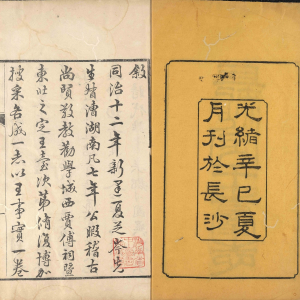 光緒辛巳夏
月刊於長沙
敘
同治十二年新建夏芝岑先
生督漕湖南凡七年公暇稽古
尚賢敬教勸學城西賈傅祠暨
東北之定王臺次第脩復博加
搜采各成一志以王事實一卷